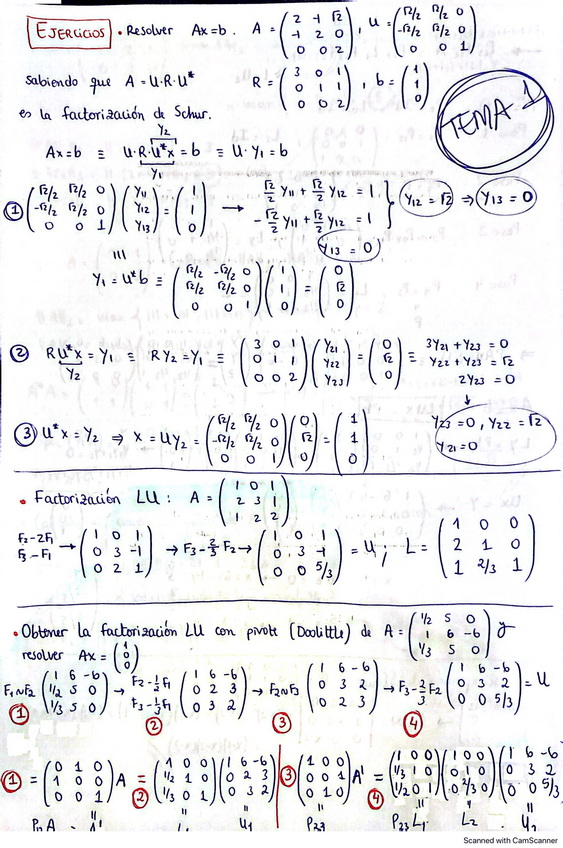 EJERCICIOS • Resolver Ax=b. A = (2 -1 √2; -1 2 0; 0 0 2), U = (√2/2 √2/2 0; -√2/2 √2/2 0; 0 0 1)
sabiendo que A = U·R·U* R = (3 0 1; 0 1 1; 0 0 2), b = (1; 1; 0)
es la factorización de Schur.
TEMA 1
Y2
Ax=b ≡ U·R·U*x = b ≡ U·Y1 = b
Y1
① (√2/2 √2/2 0; -√2/2 √2/2 0; 0 0 1) (Y11; Y12; Y13) = (1; 1; 0) → √2/2 Y11 + √2/2 Y12 = 1
-√2/2 Y11 + √2/2 Y12 = 1 } Y12 = √2 ⇒ Y13 = 0
Y13 = 0
Y1 = U*b ≡ (√2/2 -√2/2 0; √2/2 √2/2 0; 0 0 1) (1; 1; 0) = (0; √2; 0)
② R U*x = Y1 ≡ R Y2 = Y1 ≡ (3 0 1; 0 1 1; 0 0 2) (Y21; Y22; Y23) = (0; √2; 0) ≡ 3Y21 + Y23 = 0
Y22 + Y23 = √2
2Y23 = 0
Y2
↓
Y23 = 0, Y22 = √2
Y21 = 0
③ U*x = Y2 ⇒ x = UY2 = (√2/2 √2/2 0; -√2/2 √2/2 0; 0 0 1) (0; √2; 0) = (1; 1; 0)
• Factorización LU: A = (1 0 1; 2 3 1; 1 2 2)
F2-2F1
F3-F1 → (1 0 1; 0 3 -1; 0 2 1) → F3-2/3 F2 → (1 0 1; 0 3 -1; 0 0 5/3) = U; L = (1 0 0; 2 1 0; 1 2/3 1)
• Obtener la factorización LU con pivote (Doolittle) de A = (1/2 5 0; 1 6 -6; 1/3 5 0) y
resolver Ax = (1; 0; 0)
F1∼F2 (1 6 -6; 1/2 5 0; 1/3 5 0) → F2-1/2 F1 F3-1/3 F1 (1 6 -6; 0 2 3; 0 3 2) → F2∼F3 (1 6 -6; 0 3 2; 0 2 3) → F3-2/3 F2 (1 6 -6; 0 3 2; 0 0 5/3) = U
① ② ③ ④
① = (0 1 0; 1 0 0; 0 0 1) A = ② (1 0 0; 1/2 1 0; 1/3 0 1) (1 6 -6; 0 2 3; 0 3 2) ③ (1 0 0; 0 0 1; 0 1 0) A' = ④ (1 0 0; 1/3 1 0; 1/2 0 1) (1 0 0; 0 1 0; 0 2/3 0) (1 6 -6; 0 3 2; 0 0 5/3)
U1 P23 P23 L1 L2 U2
Scanned with CamScanner